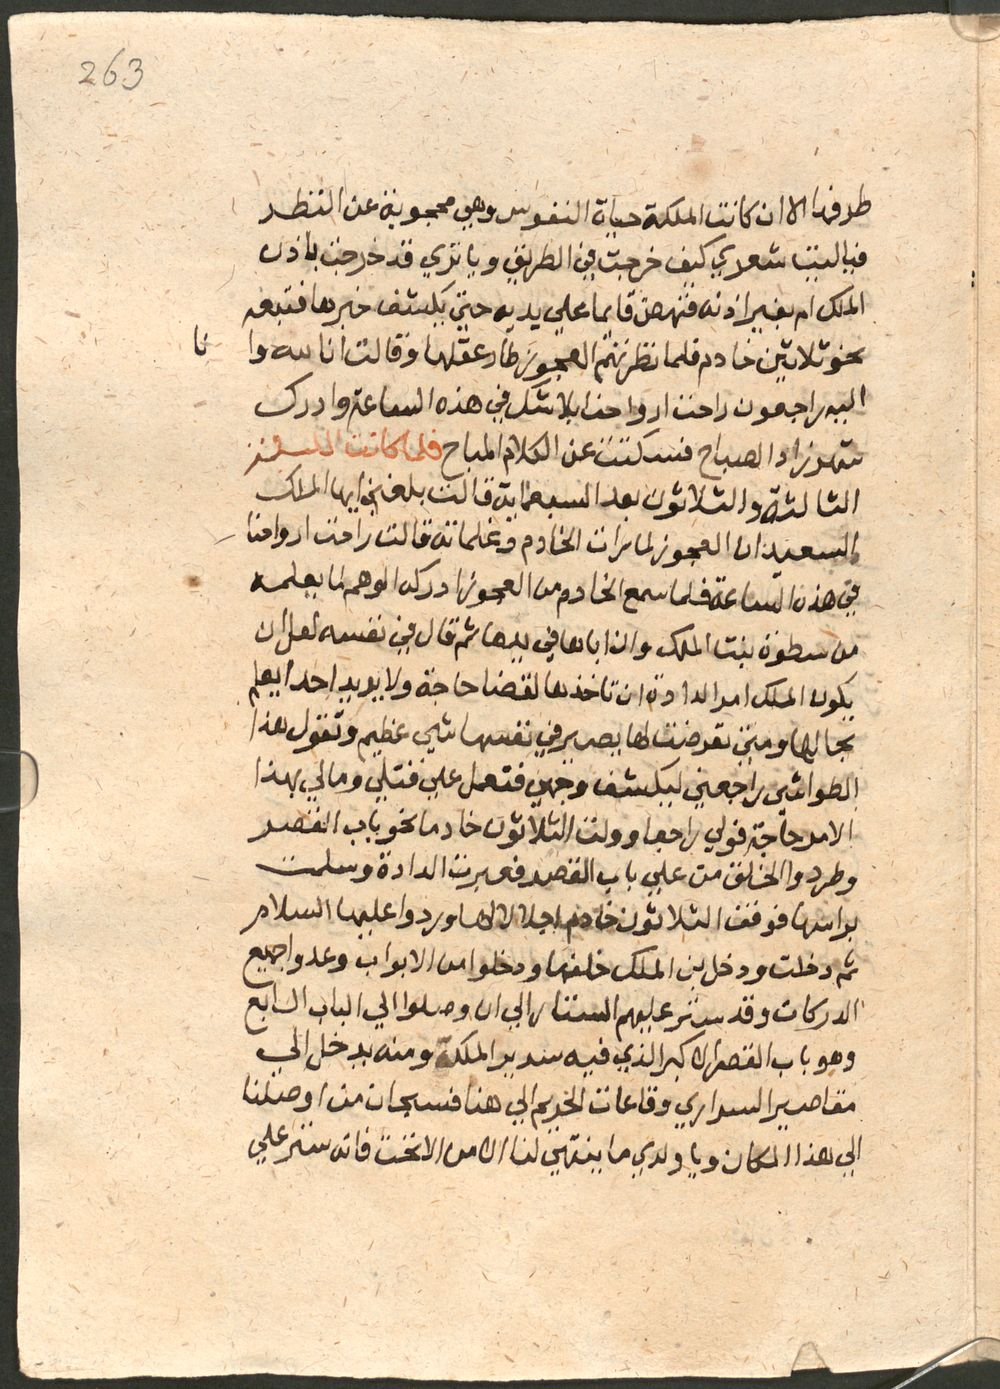 263
طرفها الا ان كانت الملكة حياة النفوس وهي محجوبة عن النظر
فياليت شعري كيف خرجت في الطريق ويا تري قد خرجت باذن
الملك ام بغير اذنه فنهض قايما علي يديه حتي يكشف خبرها فتبعه
نحو ثلاثين خادم فلما نظرتهم العجوز طار عقلها وقالت انا لله وا نا
اليه راجعون راحت ارواحنا بلا شك في هذه الساعة وادرك
شهرزاد الصباح فسكتت عن الكلام المباح فلما كانت الليلة
الثالثة والثلاثون بعد السبعماية قالت بلغني ايها الملك
السعيد ان العجوز لما رات الخادم وغلمانه قالت راحت ارواحنا
في هذه الساعة فلما سمع الخادم من العجوز ادركه الوهم لما يعلمه
من سطوة بنت الملك وان اباها في يدها ثم قال في نفسه لعل ان
يكون الملك امر الدادة ان تاخذها لقضا حاجة ولا يريد احدا يعلم
بحالها ومتي تعرضت لها يصير في نفسها شي عظيم وتقول هذا
الطواشي راجعني ليكشف وجهي فتعمل علي قتلي ومالي بهذا
الامر حاجة فولي راجعا وولت الثلاثون خادما نحو باب القصر
وطردوا الخلق من علي باب القصر فعبرت الدادة وسلمت
براسها فوقف الثلاثون خادم اجلالا لها وردوا عليها السلام
ثم دخلت ودخل بن الملك خلفها ودخلوا من الابواب وعدوا جميع
الدركات وقد ستر عليهم الستار الي ان وصلوا الي الباب السابع
وهو باب القصر الاكبر الذي فيه سرير الملكة ومنه يدخل الي
مقاصير السراري وقاعات الحريم الي هنا فسبحان من اوصلنا
الي هذا المكان ويا ولدي ما ينتهي لنا الامر الا تحت فانه ستر علي